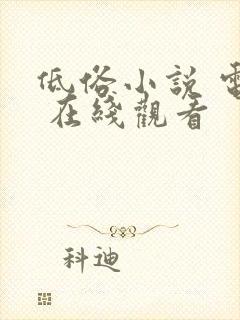 低俗小説 電
在綫觀看
科迪